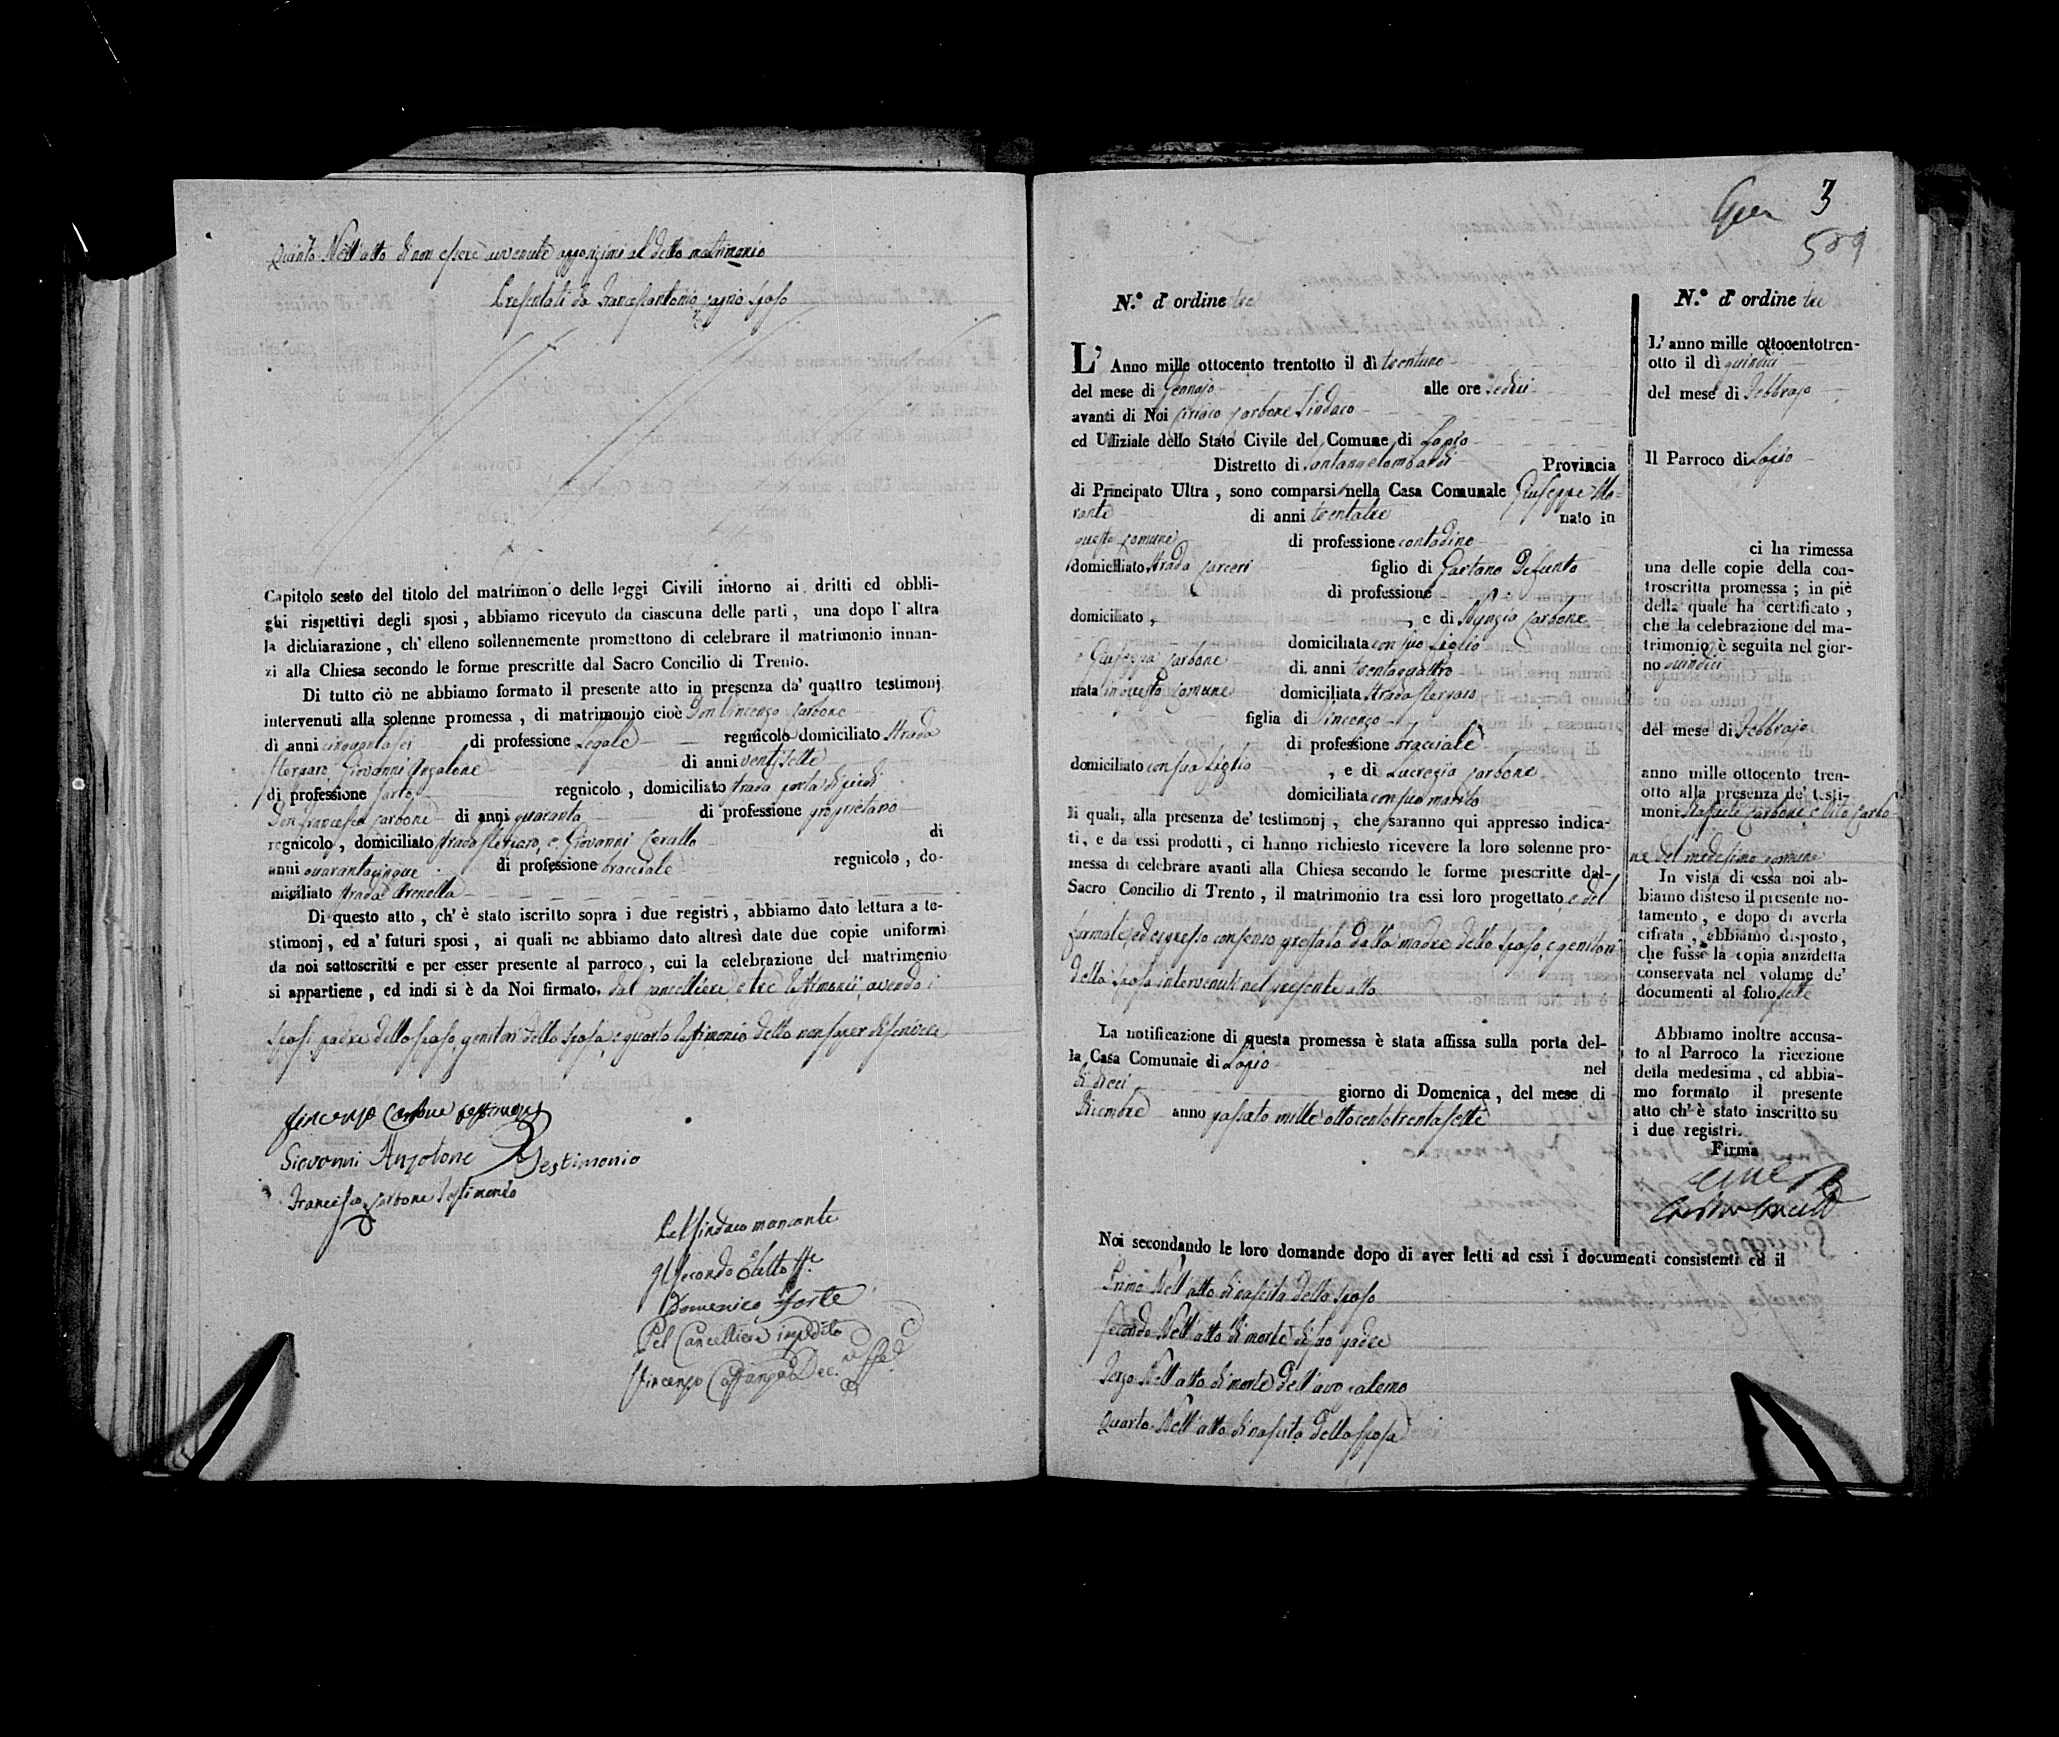 Quinto Nell'atto di non essere avvenute opposizioni al detto matrimonio
Presentati da Francescantonio Cagnio sposo
Capitolo sesto del titolo del matrimonio delle leggi Civili intorno ai dritti ed obbli-
ghi rispettivi degli sposi, abbiamo ricevuto da ciascuna delle parti, una dopo l'altra
la dichiarazione, ch'elleno sollennemente promettono di celebrare il matrimonio innan-
zi alla Chiesa secondo le forme prescritte dal Sacro Concilio di Trento.
Di tutto ciò ne abbiamo formato il presente atto in presenza da' quattro testimonj
intervenuti alla solenne promessa, di matrimonio cioè Don Vincenzo Carbone
di anni cinquantasei di professione Legale regnicolo domiciliato Strada
Giovanni Anzalone di anni ventisette
di professione sarto regnicolo, domiciliato strada porta di piedi
Don Francesco Carbone di anni quaranta di professione proprietario
regnicolo, domiciliato strada e Giovanni Cerullo di
anni quarantacinque di professione bracciale regnicolo, do-
miciliato Strada Arenella
Di questo atto, ch'è stato iscritto sopra i due registri, abbiamo dato lettura a te-
stimonj, ed a' futuri sposi, ai quali ne abbiamo dato altresì date due copie uniformi
da noi sottoscritti e per esser presente al parroco, cui la celebrazione del matrimonio
si appartiene, ed indi si è da Noi firmato. dal cancelliere, e tre testimonii, avendo i
sposi, padre dello sposo, genitori della sposa, e quarto testimonio detto non saper di scrivere
Vincenzo Carbone testimonio
Giovanni Anzolone Testimonio
Francesco Carbone testimonio
Pel Sindaco mancante
Il secondo Eletto ff.
Domenico Forte
Pel Cancelliere impedito
Vincenzo
3
509
N.° d'ordine tre
L'Anno mille ottocento trentotto il dì trentuno
del mese di Gennajo alle ore sedici
avanti di Noi Ciriaco Carbone Sindaco
ed Uffiziale dello Stato Civile del Comune di Lapio
Distretto di Santangelolombardi Provincia
di Principato Ultra, sono comparsi nella Casa Comunale Giuseppe Mo=
rante di anni trentatre nato in
questo comune di professione contadino
domiciliato Strada Carceri figlio di Gaetano Defunto
di professione
domiciliato, , e di Nunzia Carbone
domiciliata con suo figlio
e Giuseppa Carbone di anni trentaquattro
nata in questo comune domiciliata Strada
figlia di Vincenzo
di professione bracciale
domiciliato con sua figlia , e di Lucrezia Carbone
domiciliata con suo marito
li quali, alla presenza de' testimonj, che saranno qui appresso indica-
ti, e da essi prodotti, ci hanno richiesto ricevere la loro solenne pro-
messa di celebrare avanti alla Chiesa secondo le forme prescritte dal-
Sacro Concilio di Trento, il matrimonio tra essi loro progettato e del
formale, ed espresso consenso prestato dalla madre dello sposo, e genitori
della sposa intervenuti nel presente atto
La notificazione di questa promessa è stata affissa sulla porta del-
la Casa Comunale di Lapio nel
dì dieci giorno di Domenica, del mese di
Dicembre anno passato mille ottocentotrentasette
Noi secondando le loro domande dopo di aver letti ad essi i documenti consistenti ed il
Primo Nell'atto di nascita dello sposo
Secondo Nell'atto di morte di suo padre
Terzo Nell'atto di morte dell'avo paterno
Quarto Nell'atto di nascita della sposa
N.° d'ordine tre
L'anno mille ottocentotren-
otto il dì quindici
del mese di Febbrajo
Il Parroco di Lapio
ci ha rimessa
una delle copie della con-
troscritta promessa; in piè
della quale ha certificato,
che la celebrazione del ma-
trimonio è seguita nel gior-
no quindici
del mese di Febbrajo
anno mille ottocento tren-
otto alla presenza de' testi-
moni Raffaele Carbone, e Vito Carbo-
ne del medesimo comune
In vista di essa noi ab-
biamo disteso il presente no-
tamento, e dopo di averla
cifrata, abbiamo disposto,
che fusse la copia anzidetta
conservata nel volume de'
documenti al folio sette
Abbiamo inoltre accusa-
to al Parroco la ricezione
della medesima, ed abbia-
mo formato il presente
atto ch'è stato inscritto su
i due registri.
Firma